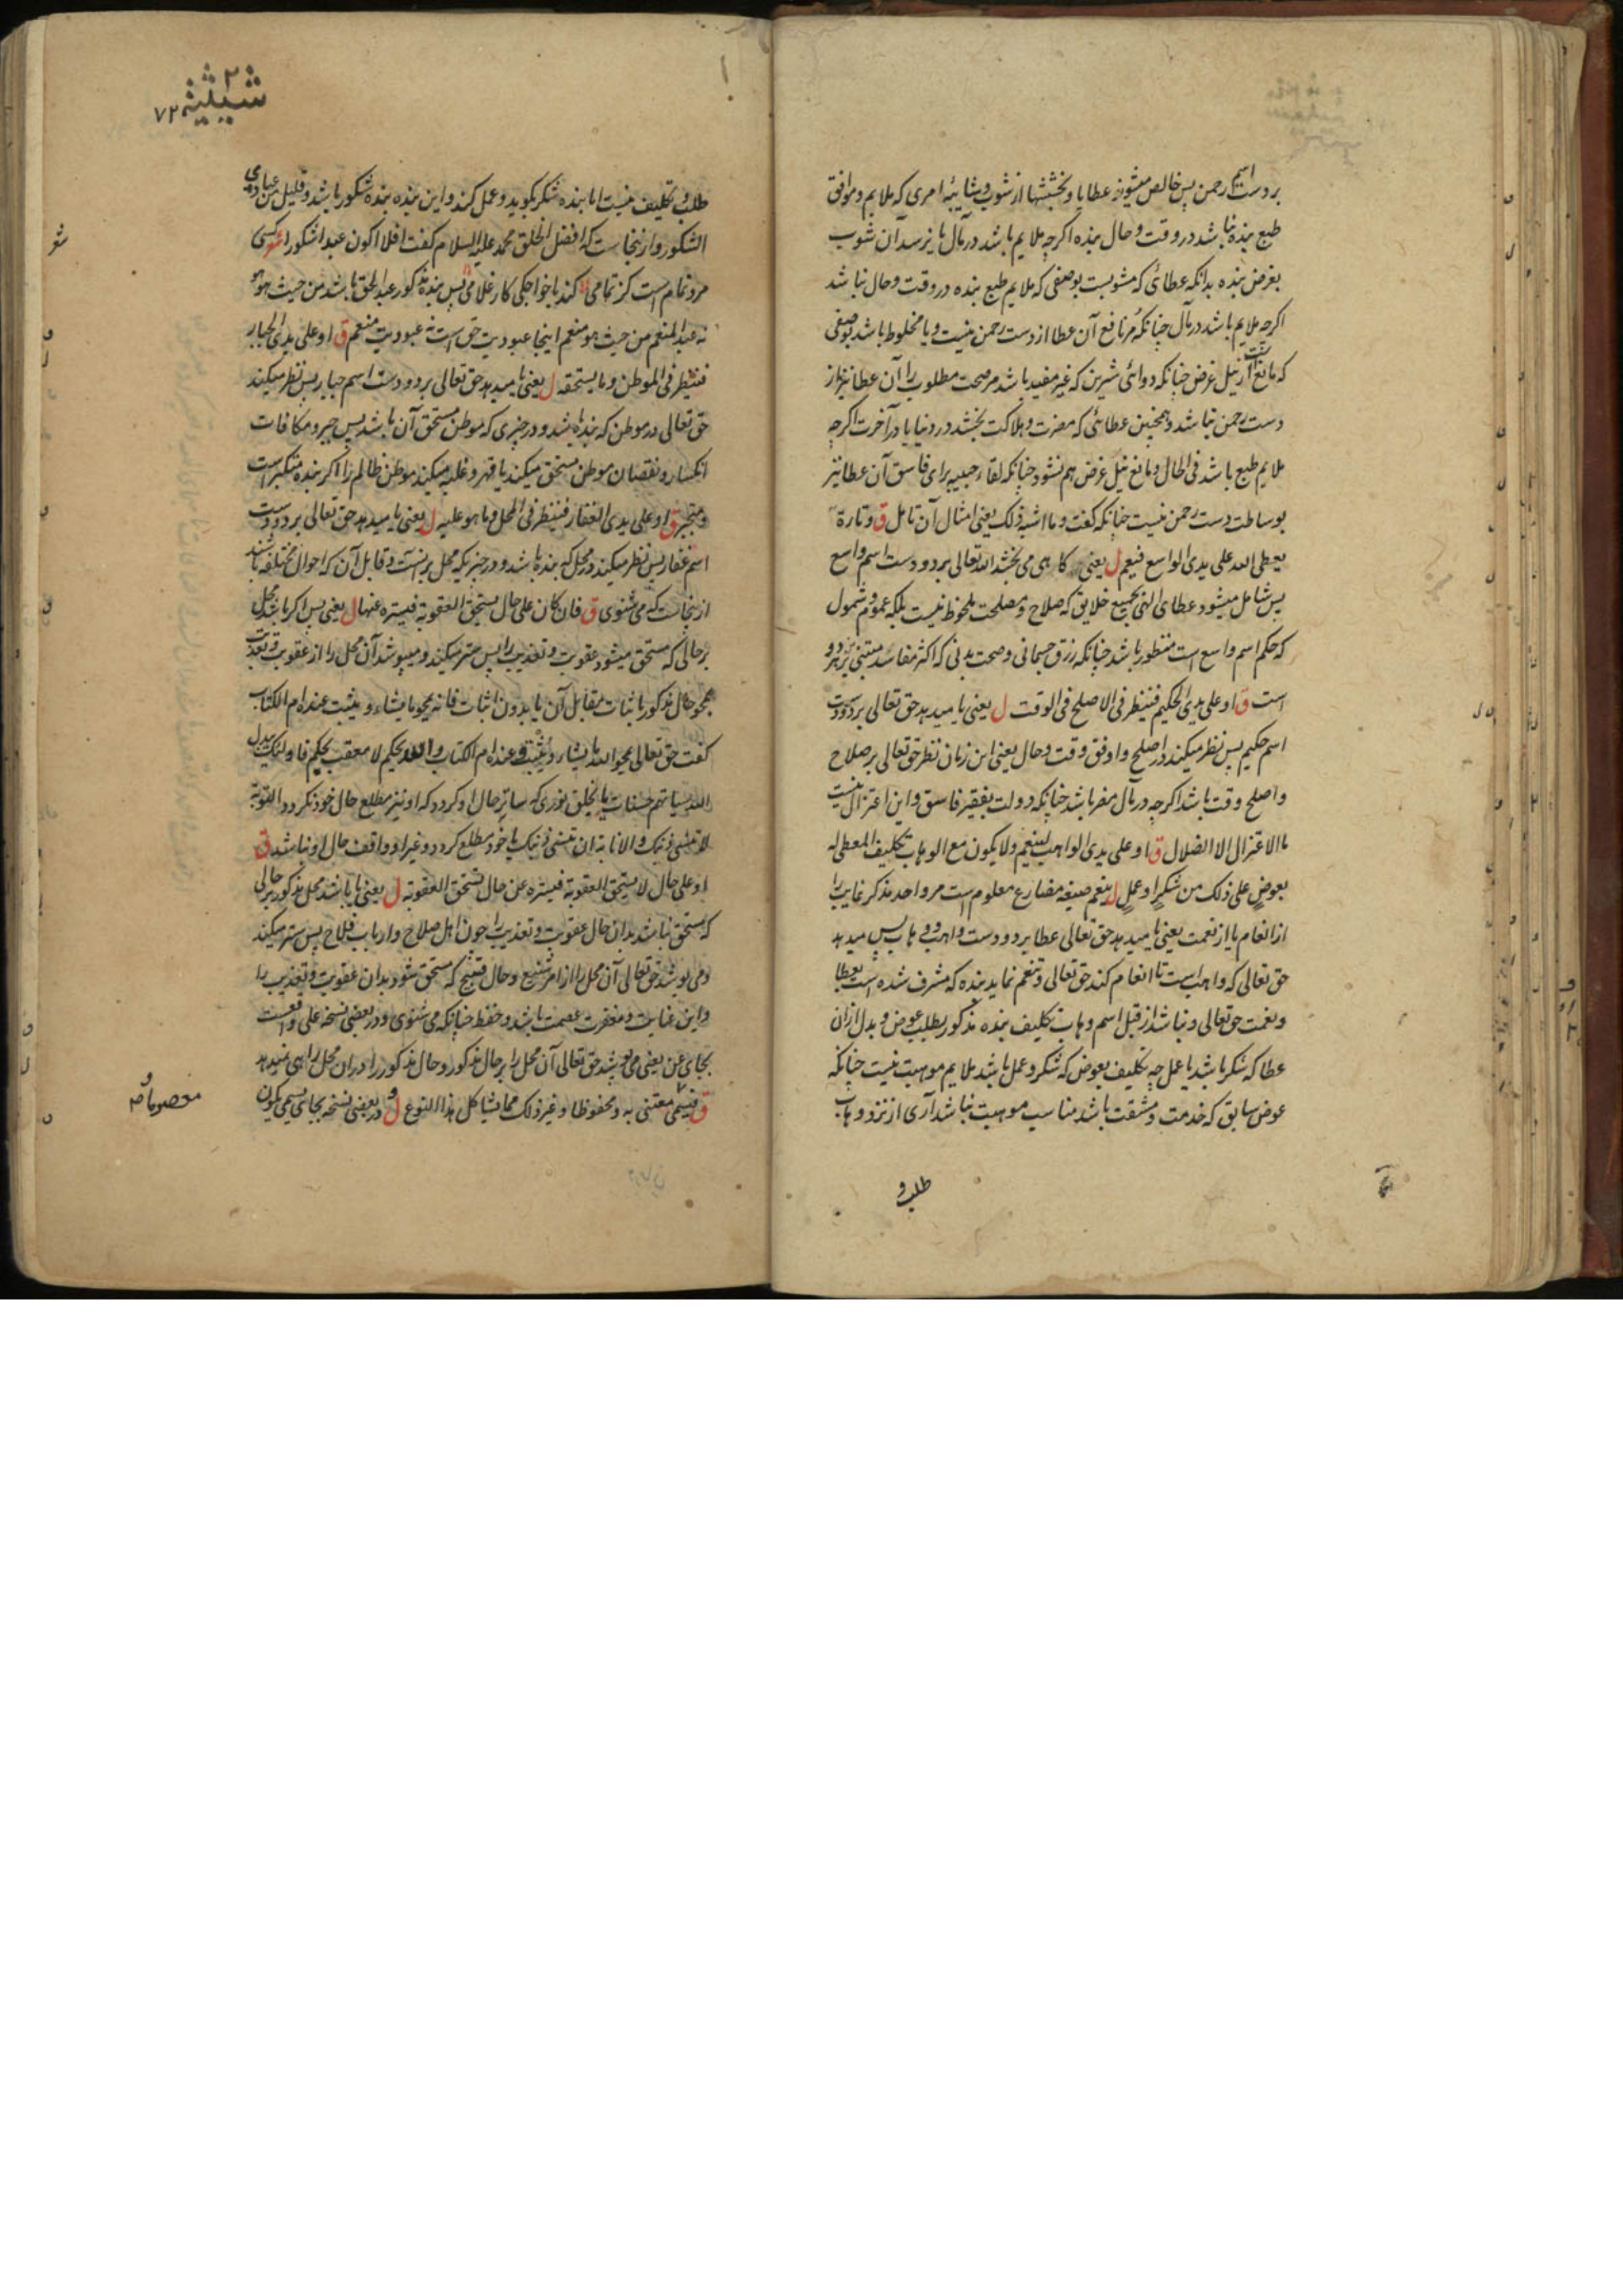 بر دست اسم رحمن پس خالص میشود عطایا و بخششها از شوب و شایبهٔ امری که ملایم و موافق
طبع بنده نباشد در وقت و حال بنده اگرچه ملایم باشد در مآل یا نرسد آن شوب
بغرض بنده بدانکه عطائی که مشوبست بوصفی که ملایم طبع بنده در وقت و حال نباشد
اگرچه ملایم باشد در مآل چنانکه مر نافع آن عطا از دست رحمن نیست و یا مخلوط باشد بوصفی
که مانع است از نیل غرض چنانکه دوائی شیرین که غیر مفید باشد مر صحت مطلوب را آن عطا نیز از
دست رحمن نباشد و همچنین عطائی که مضرت و هلاکت بخشد در دنیا یا در آخرت اگرچه
ملایم طبع باشد فی الحال و مانع نیل غرض هم نشود چنانکه لقاء حبیبه برای فاسق آن عطا نیز
بوساطت دست رحمن نیست چنانکه گفت و ما اشبه ذلک یعنی امثال آن تامل ق و تارة
یعطی الله علی یدی الواسع فیعم ل یعنی گاهی می بخشد الله تعالی بر دو دست اسم واسع
پس شامل میشود عطای الهی بجمیع خلایق که صلاح و مصلحت ملحوظ نیست بلکه عموم و شمول
که حکم اسم واسع است منظور باشد چنانکه رزق جسمانی و صحت بدنی که اکثر مفاسد مبتنی بر هر دو
است ق او علی یدی الحکیم فینظر فی الاصلح فی الوقت ل یعنی یا میدهد حق تعالی بر دو دست
اسم حکیم پس نظر میکند در اصلح و اوفق وقت و حال یعنی این زمان نظر حق تعالی بر صلاح
و اصلح وقت باشد اگرچه در مآل مضر باشد چنانکه دولت بفقیر فاسق و این اعتزال نیست
ما الاعتزال الا الضلال ق او علی یدی الواهب لینعم و لا یکون مع الوهاب تکلیف المعطی له
بعوض علی ذلک من شکر او عمل ل ینعم صیغه مضارع معلوم است مر واحد مذکر غایب را
از انعام یا از نعمت یعنی یا میدهد حق تعالی عطا بر دو دست واهب و وهاب پس میدهد
حق تعالی که واهب است تا انعام کند حق تعالی و تنعم نماید بنده که مشرف شده است بعطا
و نعمت حق تعالی و نباشد از قبل اسم وهاب تکلیف بنده مذکور بطلب عوض و بدل ازان
عطا که شکر باشد یا عمل چه تکلیف بعوض که شکر و عمل باشد ملایم موهبت نیست چنانکه
عوض سابق که خدمت و مشقت باشد مناسب موهبت نباشد آری از نزد وهاب
طلب و
۷۲
طلب و تکلیف نیست اما بنده شکر بگوید و عمل کند و این بنده بنده شکور باشد و قلیل من عبادی
الشکور و ازینجاست که افضل الخلق محمد علیه السلام گفت افلا اکون عبدا شکورا شعر کسی
مرد تمام است کز تمامی کند با خواجگی کار غلامی پس بنده مذکور عبد الحق باشد من حیث هو هو
نه عبد المنعم من حیث هو منعم اینجا عبودیت حق است نه عبودیت منعم ق او علی یدی الجبار
فینظر فی الموطن و ما یستحقه ل یعنی یا میدهد حق تعالی بر دو دست اسم جبار پس نظر میکند
حق تعالی در موطن که بنده باشد و در چیزی که موطن مستحق آن باشد پس جبر و مکافات
انکسار و نقصان موطن مستحق میکند یا قهر و غلبه میکند موطن ظالم را اگر بنده متکبر است
و متجبر ق او علی یدی الغفار فینظر فی المحل و ما هو علیه ل یعنی یا میدهد حق تعالی بر دو دست
اسم غفار پس نظر میکند در محل که بنده باشد و در چیزیکه محل برانست و قابل آن که احوال مختلفه باشند
ازینجاست که می شنوی ق فان کان علی حال یستحق العقوبة فیستره عنها ل یعنی پس اگر باشد محل
بر حالی که مستحق میشود عقوبت و تعذیب را پس ستر میکند و میپوشد آن محل را از عقوبت و تعذیب
بمحو حال مذکور باثبات مقابل آن یا بدون اثبات فانه یمحو ما یشاء و یثبت عنده ام الکتاب
گفت حق تعالی یمحو الله ما یشاء و یثبت و عنده ام الکتاب و الله یحکم لا معقب لحکمه فاولئک یبدل
الله سیئاتهم حسنات یا بخلق نوری که ساتر حال او گردد که او نیز مطلع حال خود نگردد التوبة
ان تنسی ذنبک و الانابة ان تنسی ذنبک یا خود مطلع گردد و غیر او واقف حال او نباشد ق
او علی حال لا یستحق العقوبة فیستره عن حال یستحق العقوبة ل یعنی یا باشد محل مذکور بر حالی
که مستحق نباشد بدان حال عقوبت و تعذیب را چون اهل صلاح و ارباب فلاح پس ستر میکند
و می پوشد حق تعالی آن محل را از امر شنیع و حال قبیح که مستحق شود بدان عقوبت و تعذیب را
و این عنایت و مغفرت عصمت باشد و حفظ چنانکه می شنوی و در بعضی نسخه علی واقعست
بجای عن یعنی می پوشد حق تعالی آن محل را بر حال مذکور و حال مذکور را در ان محل راهی نمیدهد
ق فیسمی معتنی به و محفوظا و غیر ذلک مما یشاکل هذا النوع ل و در بعضی نسخه بجای یسمی یکون
معصوما و